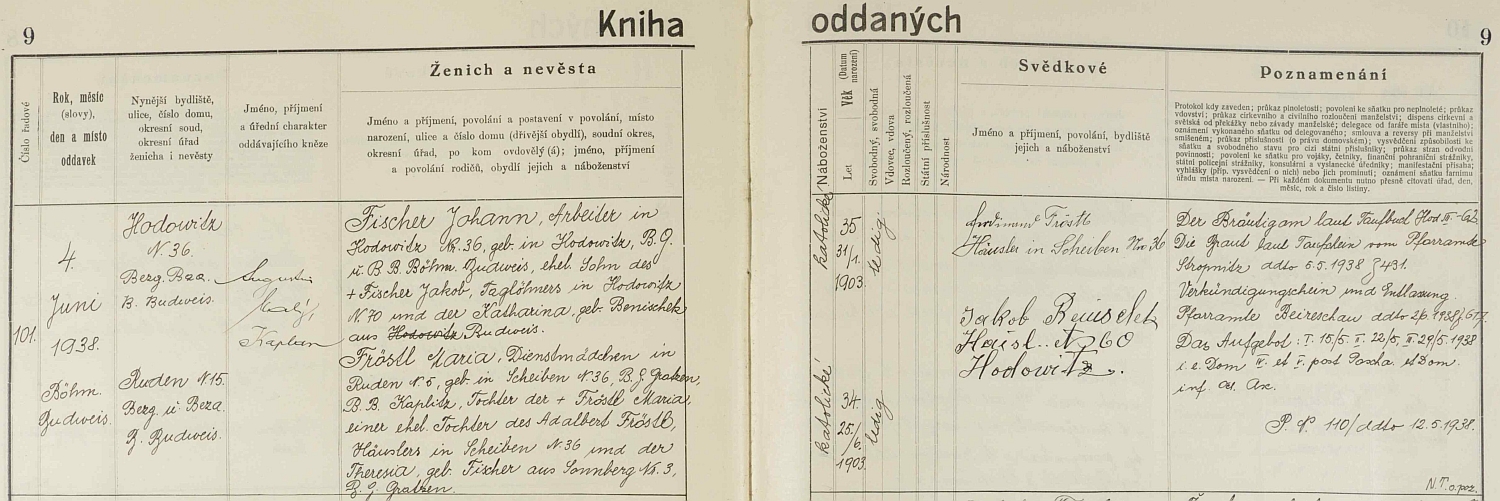 9
Kniha
oddaných
9
Číslo řadové
Rok, měsíc
(slovy),
den a místo
oddavek
Nynější bydliště,
ulice, číslo domu,
okresní soud,
okresní úřad
ženicha i nevěsty
Jméno, příjmení
a úřední charakter
oddávajícího kněze
Ženich a nevěsta
Jméno a příjmení, povolání a postavení v povolání, místo
narození, ulice a číslo domu (dřívější obydlí), soudní okres,
okresní úřad, po kom ovdověl (á); jméno, příjmení
a povolání rodičů, obydlí jejich a náboženství
Náboženství
Věk (Datum narození)
Let
Svobodný, svobodná
Vdovec, vdova
Rozloučený, rozloučená
Státní příslušnost
Národnost
Svědkové
Jméno a příjmení, povolání, bydliště
jejich a náboženství
Poznamenání
Protokol kdy zaveden; průkaz plnoletosti; povolení ke sňatku pro neplnoleté; průkaz
vdovství; průkaz církevního a civilního rozloučení manželství; dispens církevní a
světská od překážky nebo závady manželské; delegace od faráře místa (vlastního);
oznámení vykonaného sňatku od delegovaného; smlouva a reversy při manželství
smíšeném; průkaz příslušnosti (o právu domovském); vysvědčení způsobilosti ke
sňatku a svobodného stavu pro cizí státní příslušníky; průkaz stran odvodní
povinnosti; povolení ke sňatku pro vojáky, četníky, finanční pohraniční strážníky,
státní policejní strážníky, konsulární a vyslanecké úředníky; manifestační přísaha;
vyhlášky (příp. vysvědčení o nich) nebo jich prominutí; oznámení sňatku farnímu
úřadu místa narození. — Při každém dokumentu nutno přesně citovati úřad, den,
měsíc, rok a číslo listiny.
101.
4.
Juni
1938.
Böhm.
Budweis.
Hodowitz
N. 36.
Berg. Bza.
B. Budweis.
Ruden N. 15.
Berg. u. Beza.
B. Budweis.
Augustin
Malý,
Kaplan
Fischer Johann, Arbeiter in
Hodowitz Nr. 36, geb. in Hodowitz, B.G.
u. B.B. Böhm. Budweis, ehel. Sohn des
+ Fischer Jakob, Taglöhners in Hodowitz
N. 70 und der Katharina, geb. Benischek
aus Hodowitz Budweis.
Fröstl Maria, Dienstmädchen in
Ruden N. 5, geb. in Scheiben N. 36, B.G. Gratzen,
B.B. Kaplitz, Tochter der + Fröstl Maria,
einer ehel. Tochter des Adalbert Fröstl,
Häuslers in Scheiben N. 36 und der
Theresia, geb. Fischer aus Sonnberg Nr. 3,
B.G. Gratzen.
katolické
35
31/1.
1903.
ledig
katolické
34.
25/
6.
1903.
ledig
Ferdinand Fröstl
Häusler in Scheiben Nr. 36
Jakob
Häisl. N 60
Hodowitz.
Der Bräutigam laut Taufbuch Hod. III
Die Braut laut Taufschein vom Pfarramte
Stropnitz ddto 5.5.1938 Z 431.
Verkündigungschein und Entlassung
Pfarramte Beireschau ddto 2/6. 1938
Das Aufgebot: I. 15/5. II. 22/5, III. 29/5. 1938
i. e. Dom. IV. et V. post Pascha. et Dom.
inf. Oct. Asc.
P. N° 110/ddto 12.5.1938.
N.T.o.poz.